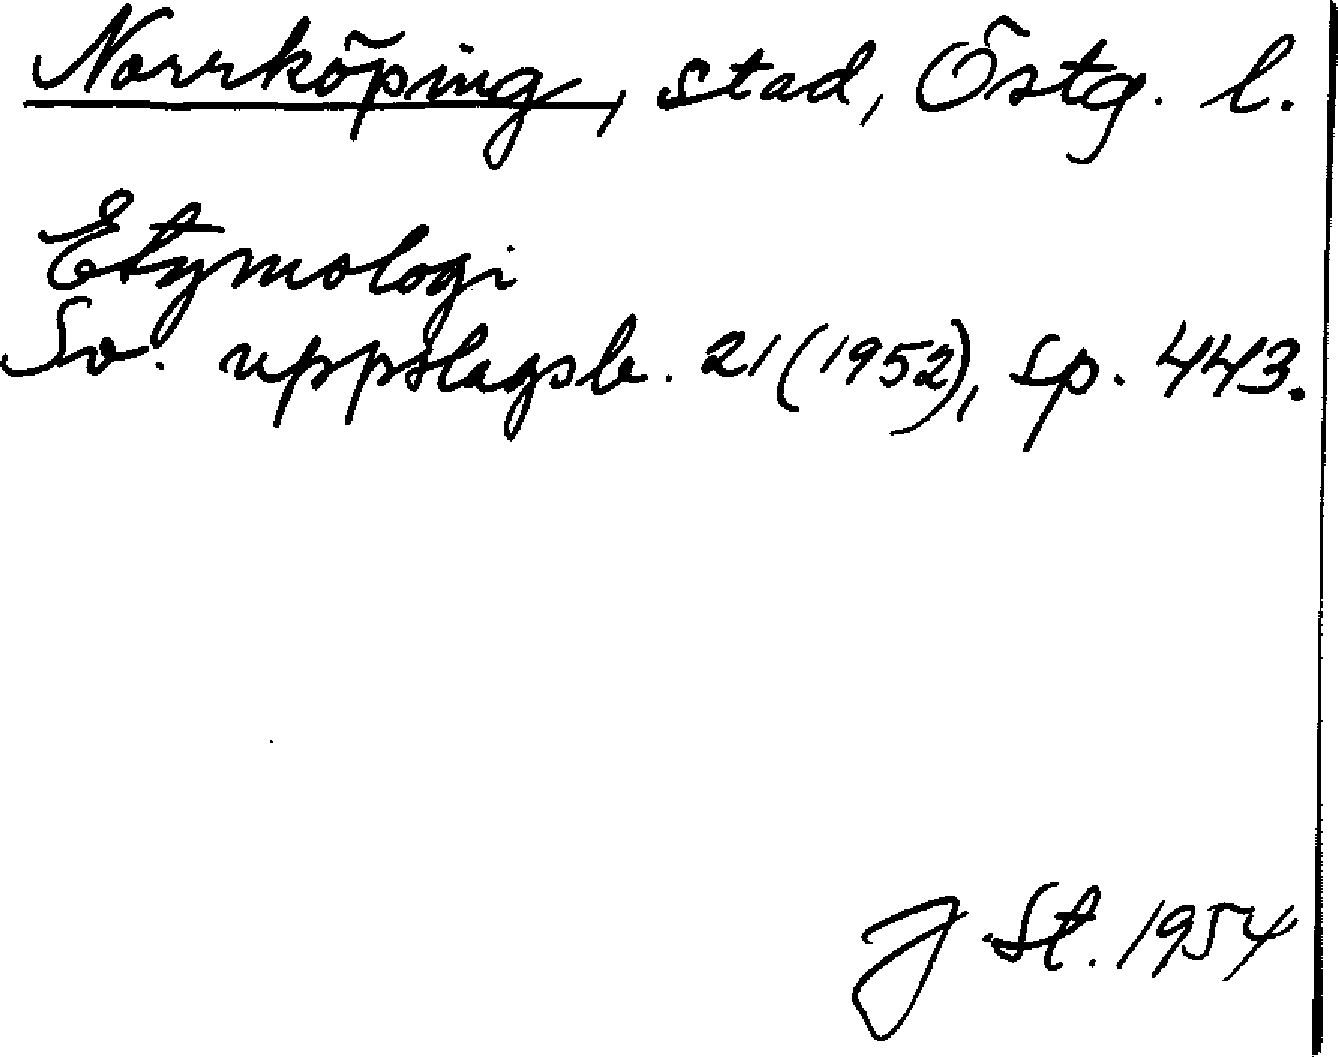 Norrköping, stad, Östg. l.
Etymologi
Sv. uppslagsb. 21 (1952), sp. 443.
J St. 1954